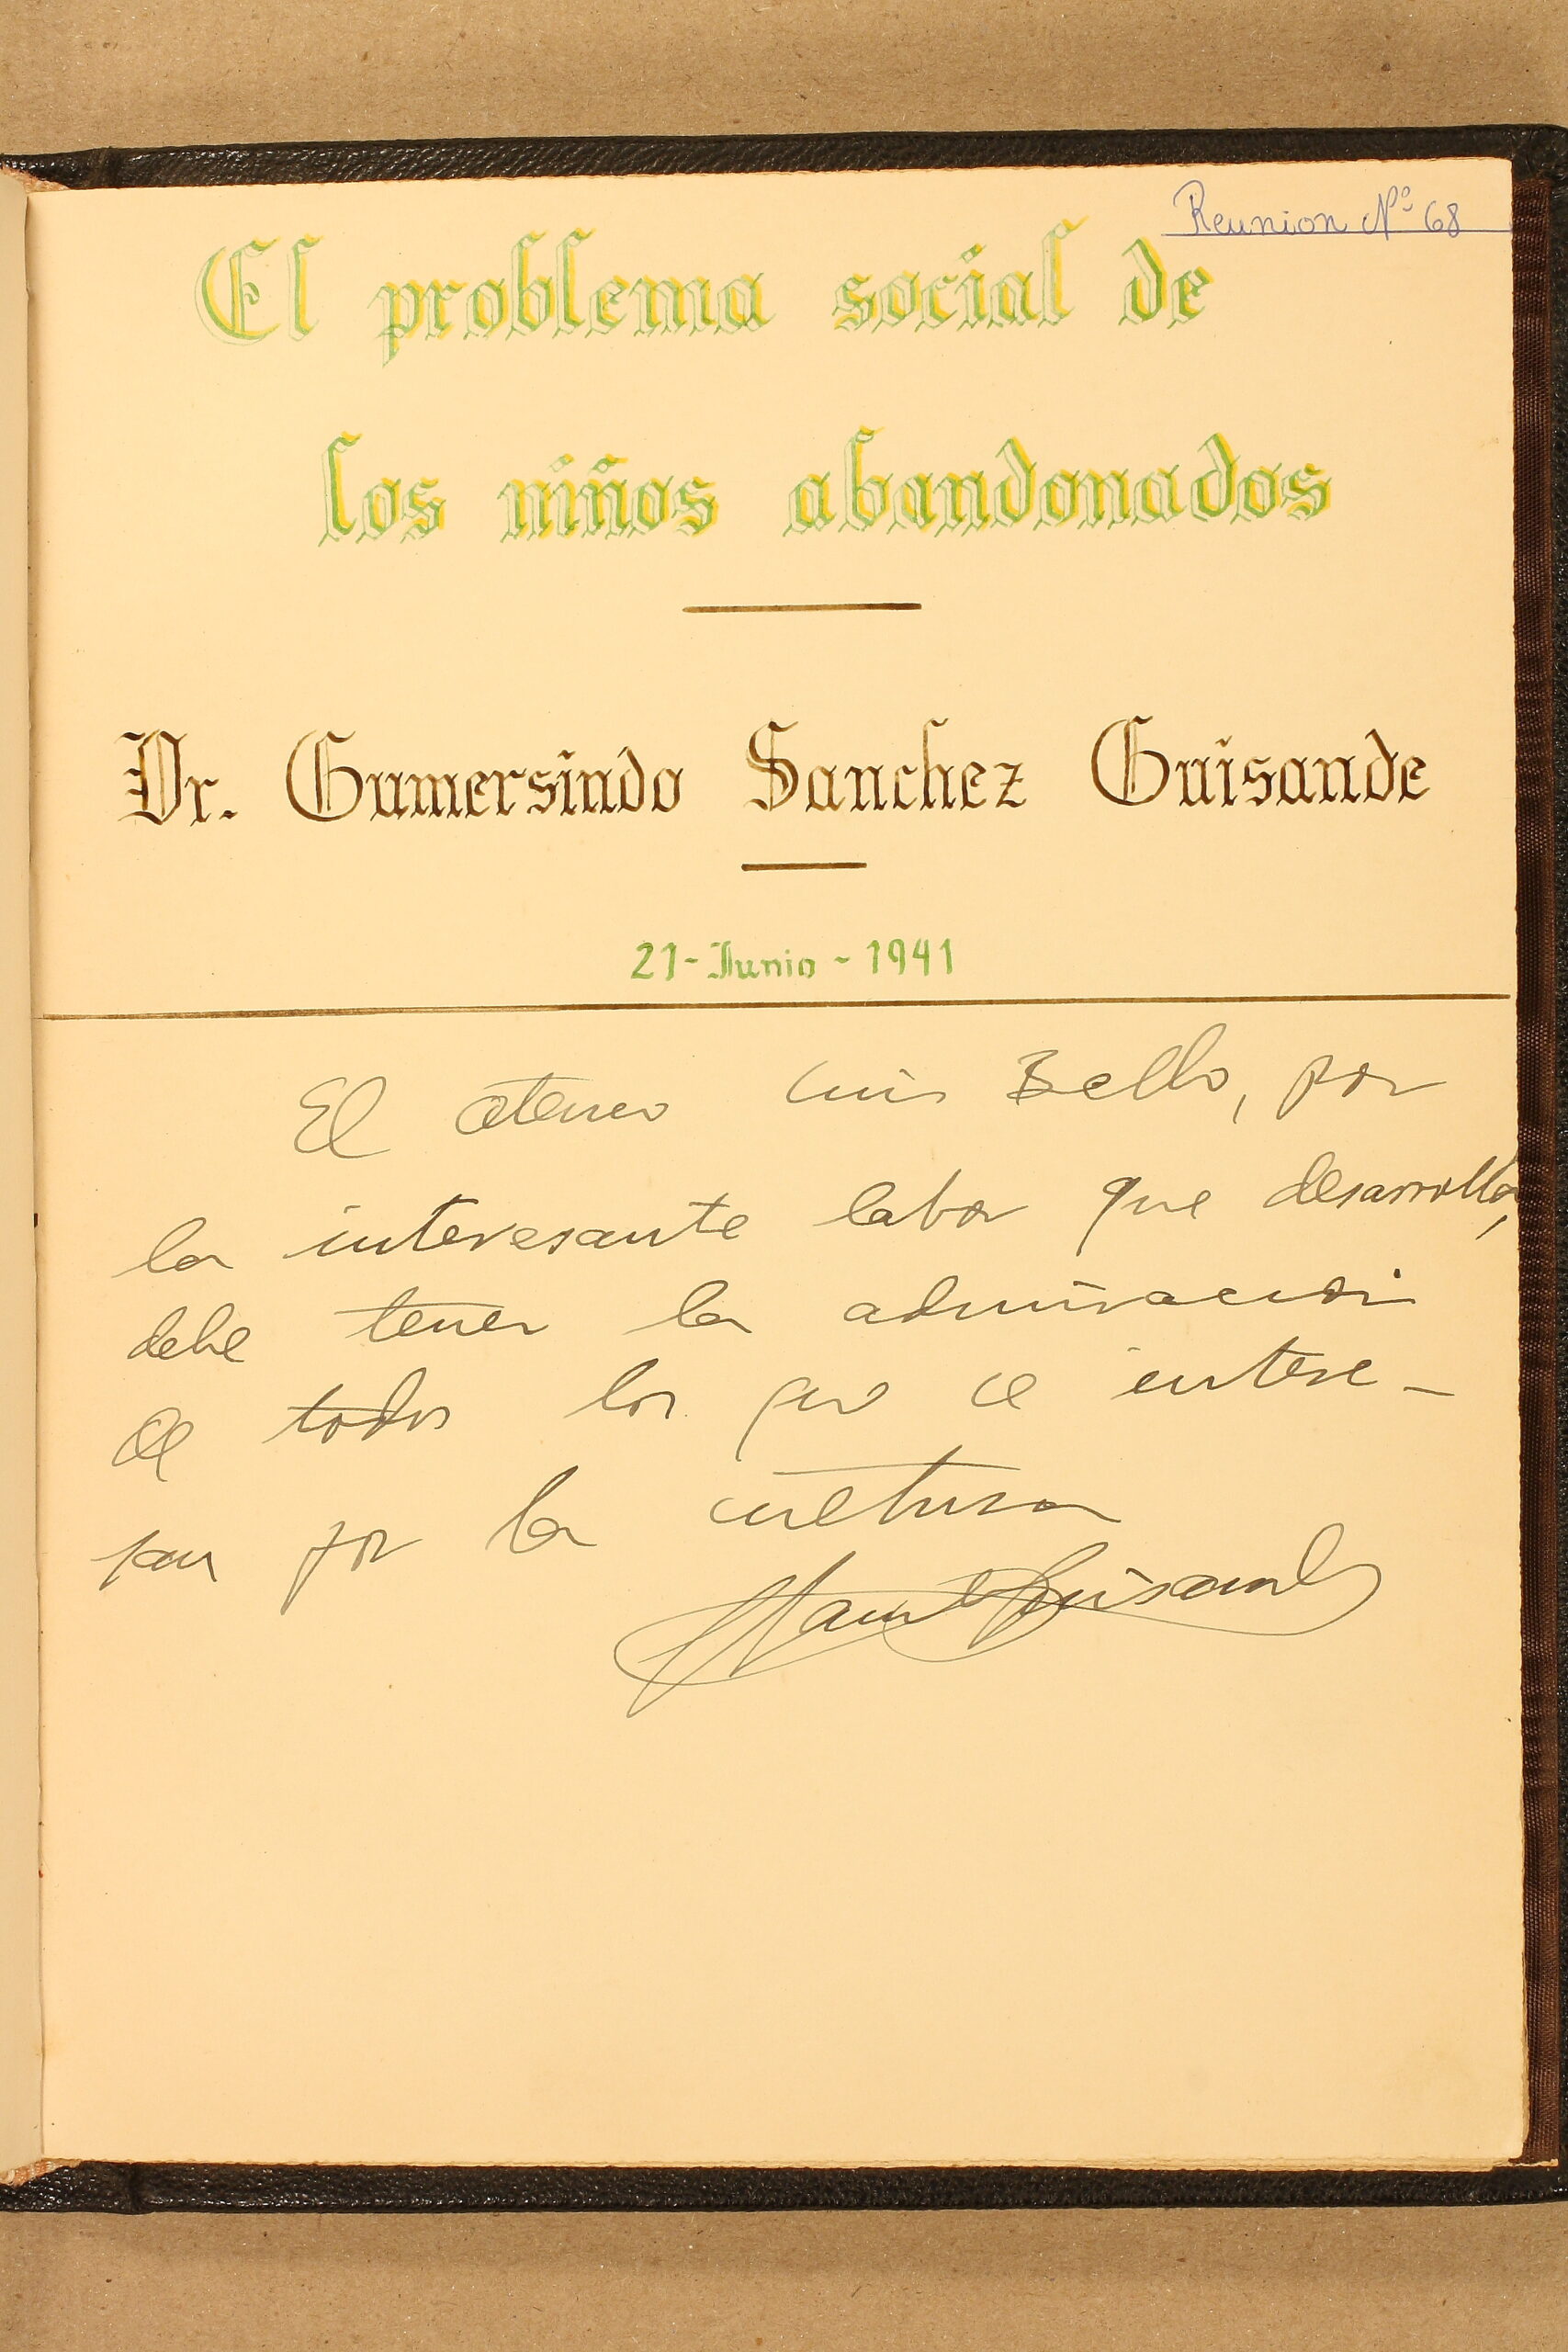 Reunion Nº 68
El problema social de
los niños abandonados
Dr. Gumersindo Sanchez Guisande
21-Junio-1941
El ateneo Luis Bello, por
la interesante labor que desarrolla,
debe tener la admiracion
de todos los que se intere-
san por la cultura
Guisande